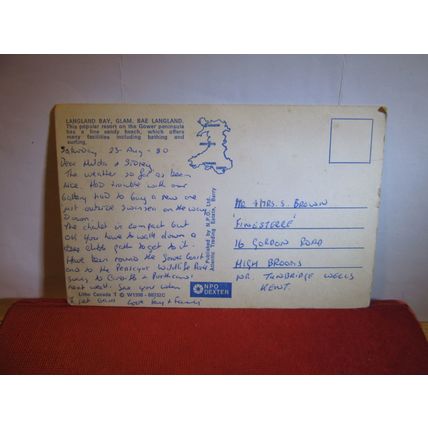 LANGLAND BAY, GLAM. BAE LANGLAND.
This popular resort on the Gower peninsula
has a fine sandy beach, which offers
many facilities including bathing and
surfing.
Saturday 23-Aug-80
Dear Hilda & Sidney
The weather so far as been
nice. Had trouble with our
battery had to buy a new one
just outside Swansea on the way
down.
The chalet is compact but
ok you have to walk down a
steep path to get to it.
Have been round the Gower Coast
and to the Penscynor Wildlife Park
Going to &
next week. See you when
I get back Love &
Litho Canada T © W1108-80232C
Published by N.P.O. Ltd.,
Atlantic Trading Estate, Barry
NPO
DEXTER
MR & MRS. S. BROWN
'FINESTERRE'
16 GORDON ROAD
HIGH BROOMS
NR. TUNBRIDGE WELLS
KENT.